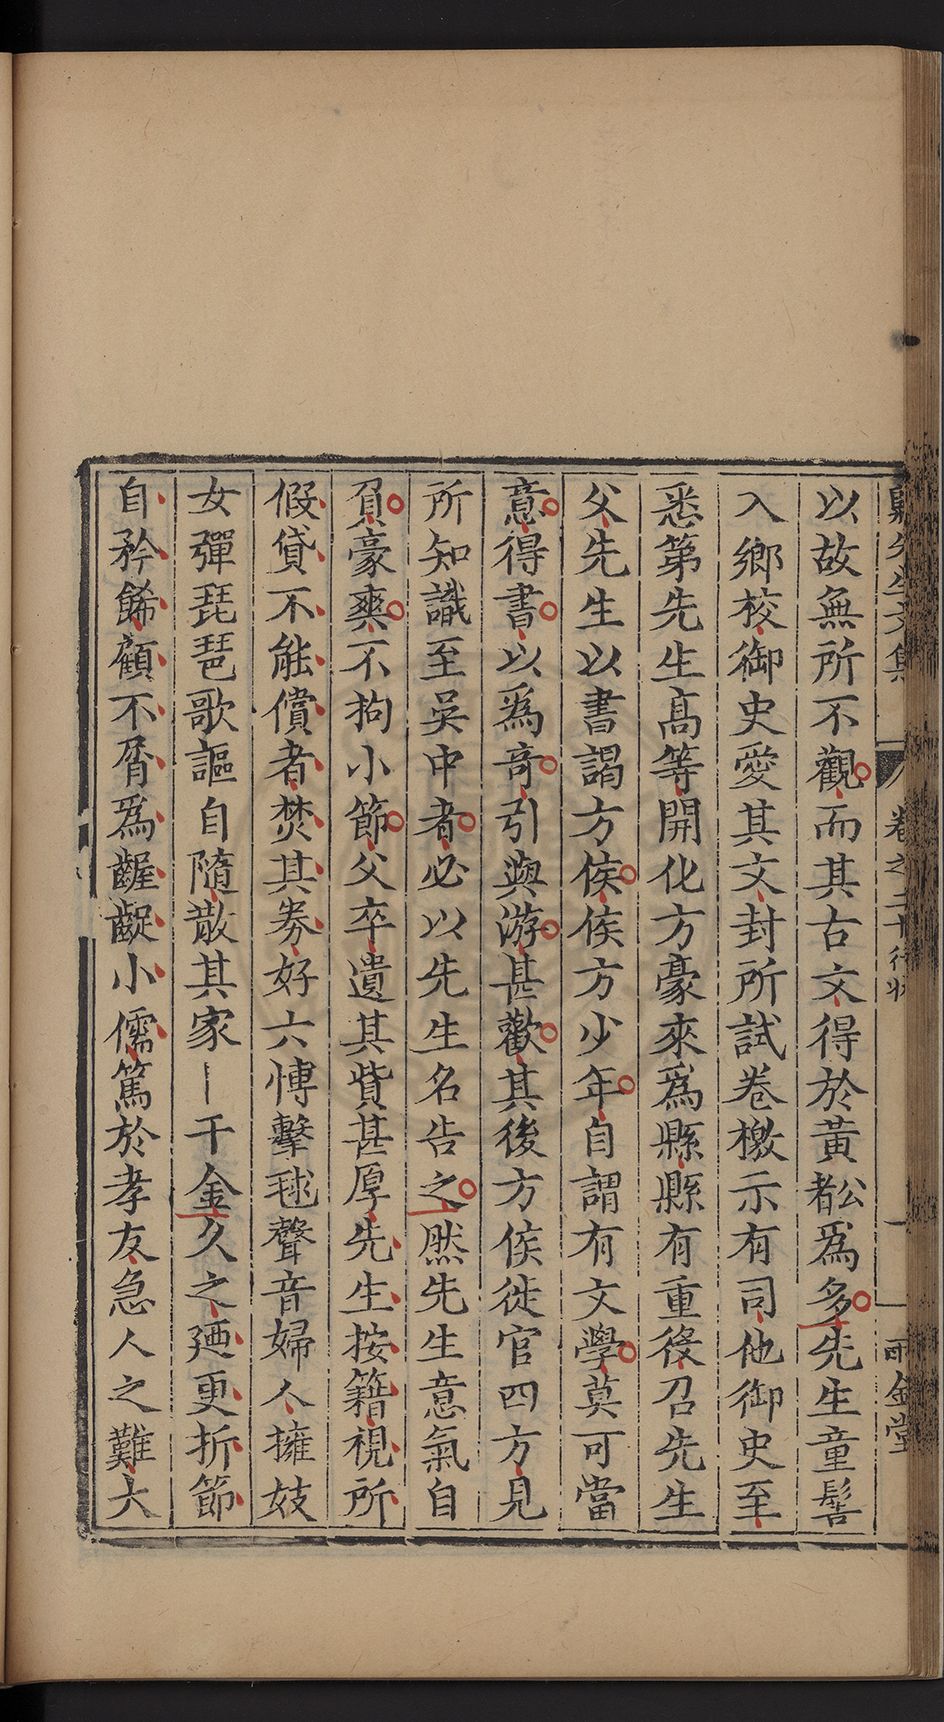 先生文集 卷之二十行狀 雨金堂
以故無所不觀而其古文得於黃公都爲多先生童髫
入鄉校御史愛其文封所試卷檄示有司他御史至
悉第先生高等開化方豪來爲縣縣有重役召先生
父先生以書謁方侯侯方少年自謂有文學莫可當
意得書以爲竒引與游甚歡其後方侯徙官四方見
所知識至吳中者必以先生名告之然先生意氣自
負豪爽不拘小節父卒遺其貲甚厚先生按籍視所
假貸不能償者焚其券好六愽擊毬聲音婦人擁妓
女彈琵琶歌謳自隨散其家千金久之廼更折節
自矜餙顧不屑爲齷齪小儒篤於孝友急人之難大